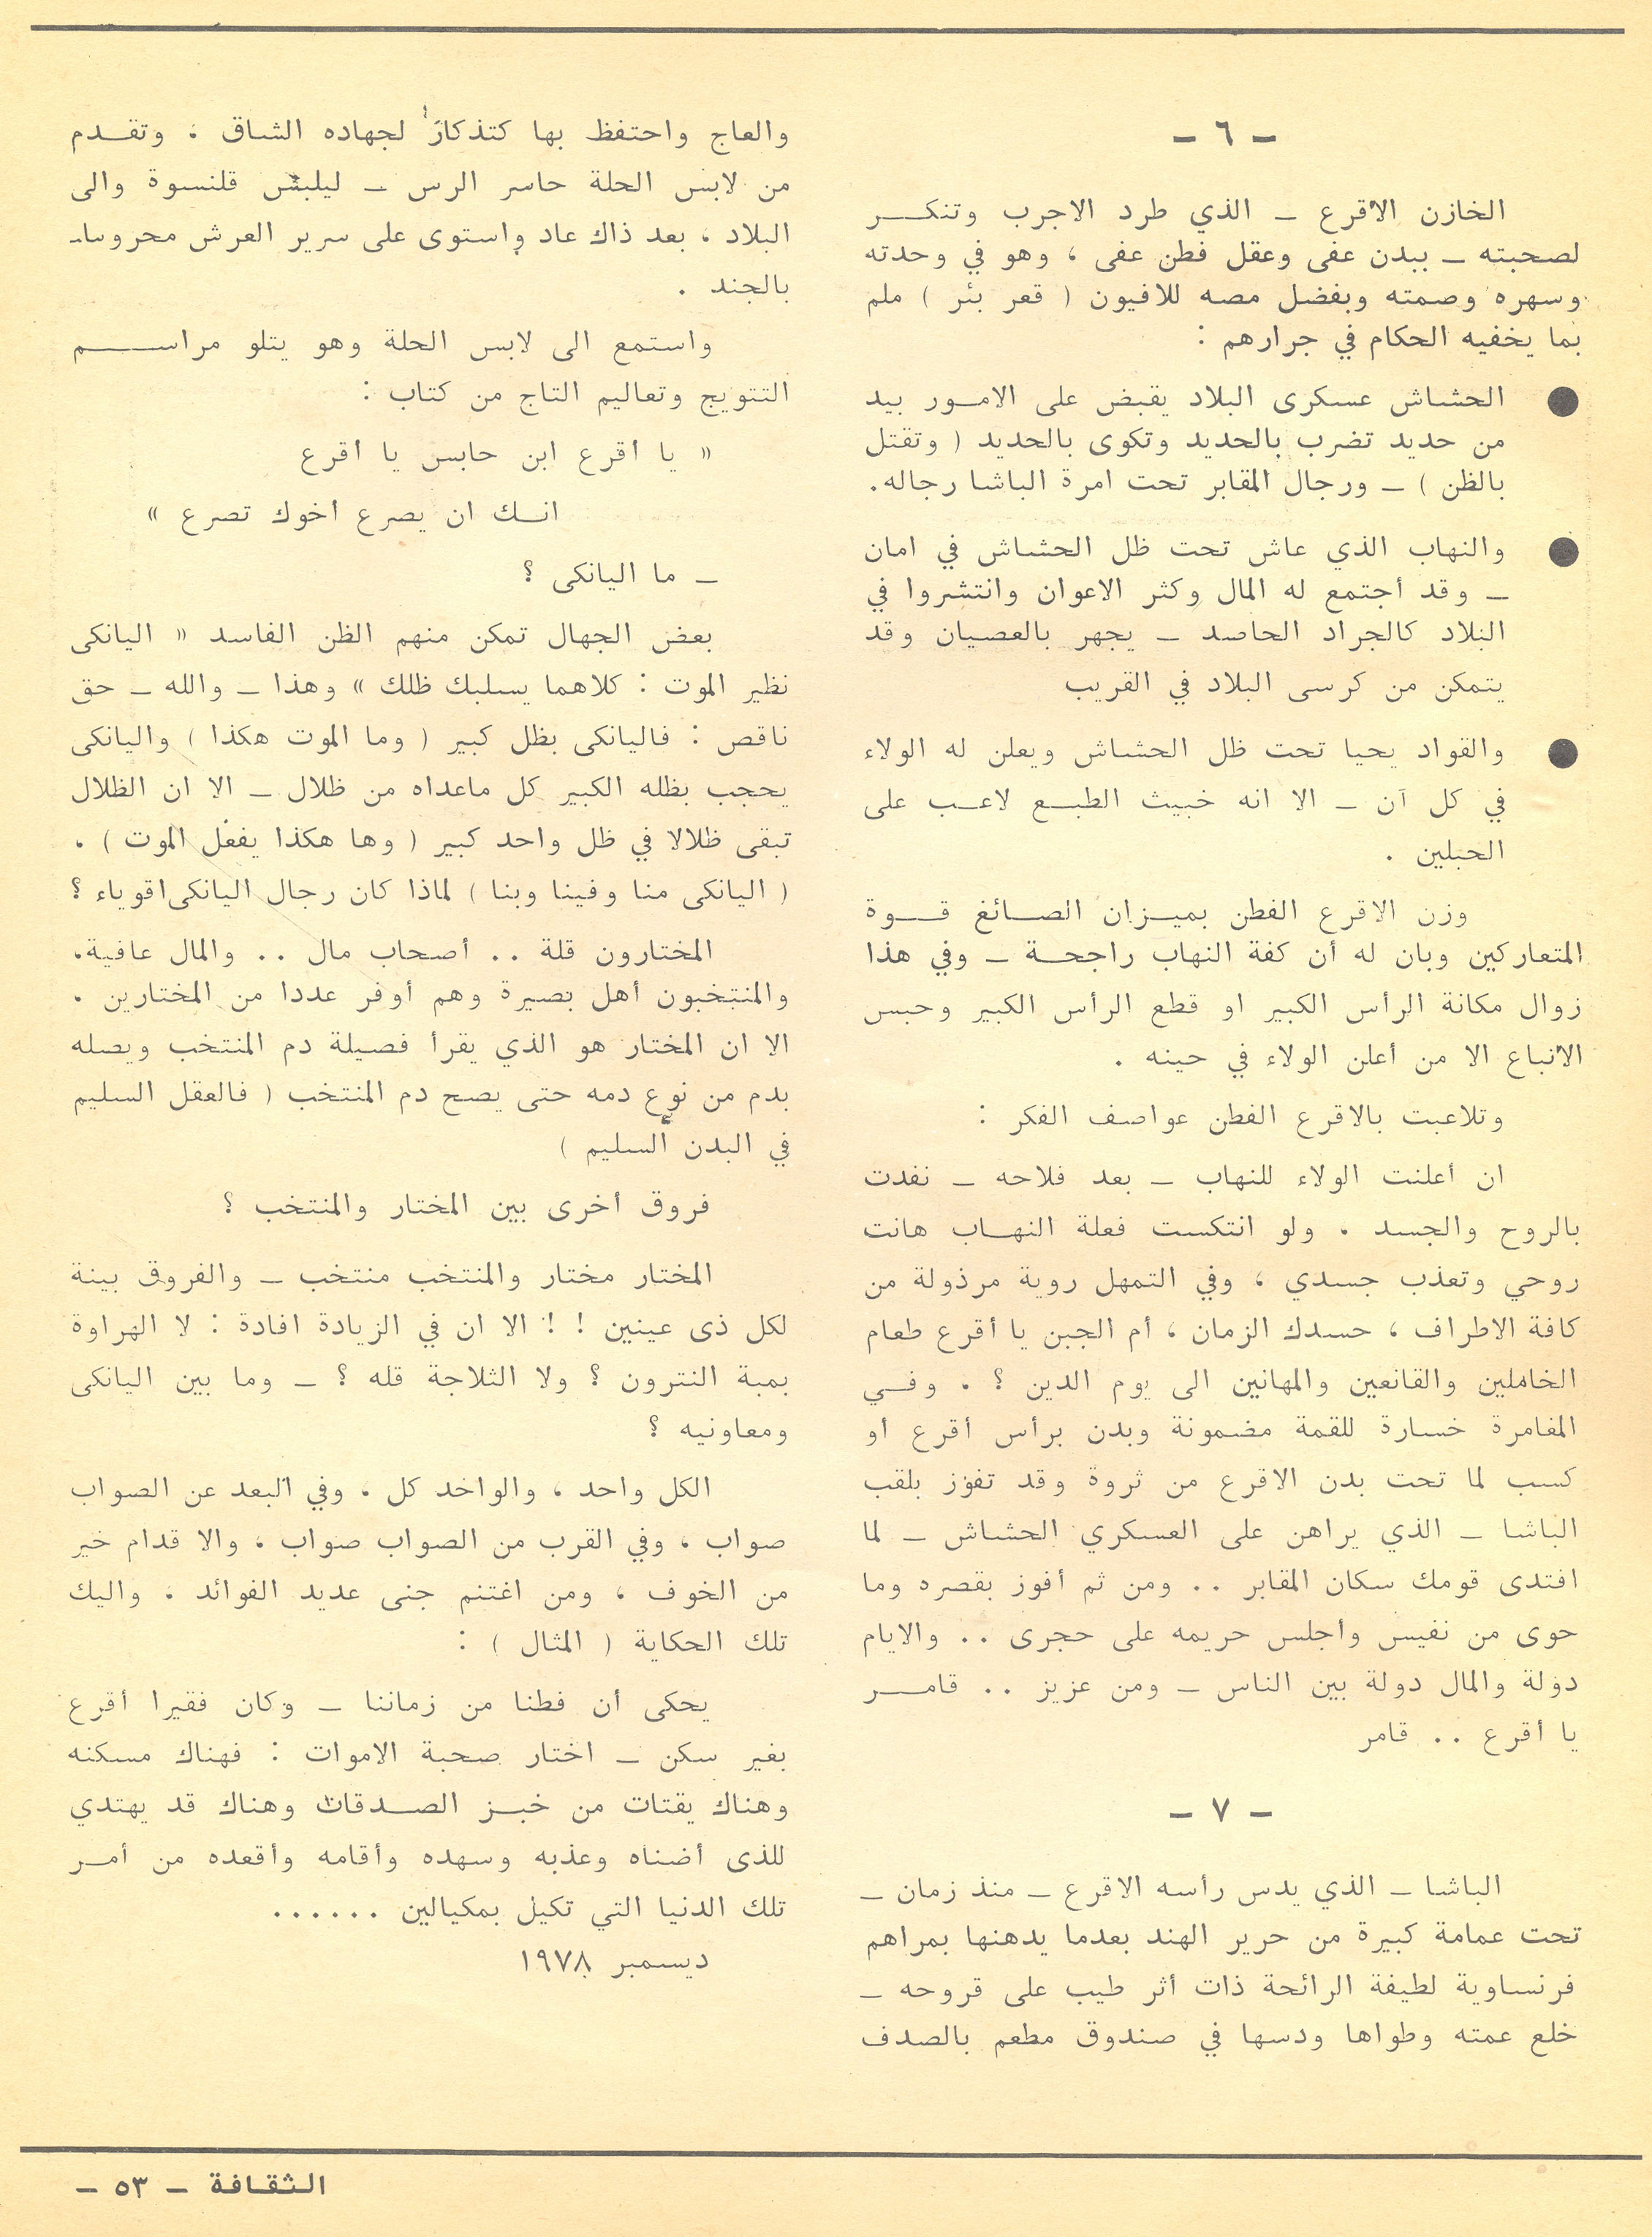 - ٦ -
الخازن الأقرع - الذي طرد الاجرب وتنكر
لصحبته - ببدن عفى وعقل فطن عفى ، وهو في وحدته
وسهره وصمته وبفضل مصه للافيون ( قعر بئر ) ملم
بما يخفيه الحكام في جرارهم :
● الحشاش عسكرى البلاد يقبض على الامور بيد
من حديد تضرب بالحديد وتكوى بالحديد ( وتقتل
بالظن ) - ورجال المقابر تحت امرة الباشا رجاله .
● والنهاب الذي عاش تحت ظل الحشاش في امان
- وقد أجتمع له المال وكثر الاعوان وانتشروا في
البلاد كالجراد الحاصد - يجهر بالعصيان وقد
يتمكن من كرسى البلاد في القريب
● والقواد يحيا تحت ظل الحشاش ويعلن له الولاء
في كل آن - الا انه خبيث الطبع لاعب على
الحبلين .
وزن الاقرع الفطن بميزان الصائغ قوة
المتعاركين وبان له أن كفة النهاب راجحة - وفي هذا
زوال مكانة الرأس الكبير او قطع الرأس الكبير وحبس
الأتباع الا من أعلن الولاء في حينه .
وتلاعبت بالاقرع الفطن عواصف الفكر :
ان أعلنت الولاء للنهاب - بعد فلاحه - نفدت
بالروح والجسد . ولو انتكست فعلة النهاب هانت
روحي وتعذب جسدي ، وفي التمهل روية مرذولة من
كافة الاطراف ، حسدك الزمان ، أم الجبن يا أقرع طعام
الخاملين والقانعين والمهانين الى يوم الدين ؟ . وفي
المغامرة خسارة للقمة مضمونة وبدن برأس أقرع أو
كسب لما تحت بدن الاقرع من ثروة وقد تفوز بلقب
الباشا - الذي يراهن على العسكري الحشاش - لما
افتدى قومك سكان المقابر .. ومن ثم أفوز بقصره وما
حوى من نفيس وأجلس حريمه على حجرى .. والايام
دولة والمال دولة بين الناس - ومن عزيز .. قامر
يا أقرع .. قامر
- ٧ -
الباشا - الذي يدس رأسه الاقرع - منذ زمان -
تحت عمامة كبيرة من حرير الهند بعدما يدهنها بمراهم
فرنساوية لطيفة الرائحة ذات أثر طيب على قروحه -
خلع عمته وطواها ودسها في صندوق مطعم بالصدف
والعاج واحتفظ بها كتذكار لجهاده الشاق . وتقدم
من لابس الحلة حاسر الرس - ليلبس قلنسوة والى
البلاد ، بعد ذاك عاد واستوى على سرير العرش محروسا
بالجند .
واستمع الى لابس الحلة وهو يتلو مراسم
التتويج وتعاليم التاج من كتاب :
« يا أقرع ابن حابس يا أقرع
انك ان يصرع أخوك تصرع »
- ما اليانكى ؟
بعض الجهال تمكن منهم الظن الفاسد « اليانكى
نظير الموت : كلاهما يسلبك ظلك » وهذا - والله - حق
ناقص : فاليانكى بظل كبير ( وما الموت هكذا ) واليانكى
يحجب بظله الكبير كل ماعداه من ظلال - الا ان الظلال
تبقى ظلالا في ظل واحد كبير ( وها هكذا يفعل الموت ) .
( اليانكى منا وفينا وبنا ) لماذا كان رجال اليانكى اقوياء ؟
المختارون قلة .. أصحاب مال .. والمال عافية .
والمنتخبون أهل بصيرة وهم أوفر عددا من المختارين .
الا ان المختار هو الذي يقرأ فصيلة دم المنتخب ويصله
بدم من نوع دمه حتى يصح دم المنتخب ( فالعقل السليم
في البدن السليم )
فروق أخرى بين المختار والمنتخب ؟
المختار مختار والمنتخب منتخب - والفروق بينة
لكل ذى عينين ! ! الا ان في الزيادة افادة : لا الهراوة
بمبة النترون ؟ ولا الثلاجة قله ؟ - وما بين اليانكى
ومعاونيه ؟
الكل واحد ، والواحد كل ، وفي البعد عن الصواب
صواب ، وفي القرب من الصواب صواب ، والا قدام خير
من الخوف ، ومن اغتنم جنى عديد الفوائد . واليك
تلك الحكاية ( المثال ) :
يحكى أن فطنا من زماننا - وكان فقيرا أقرع
بغير سكن - اختار صحبة الاموات : فهناك مسكنه
وهناك يقتات من خبز الصدقات وهناك قد يهتدي
للذى أضناه وعذبه وسهده وأقامه وأقعده من أمر
تلك الدنيا التي تكيل بمكيالين ......
ديسمبر ١٩٧٨
الثقافة - ٥٣ -